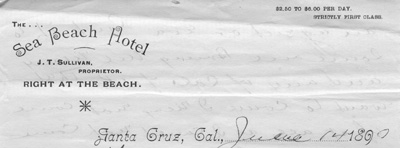 $2.50 TO $6.00 PER DAY.
STRICTLY FIRST CLASS.
THE...
Sea Beach Hotel
J. T. SULLIVAN,
PROPRIETOR.
RIGHT AT THE BEACH.
Santa Cruz, Cal., June 14 1890